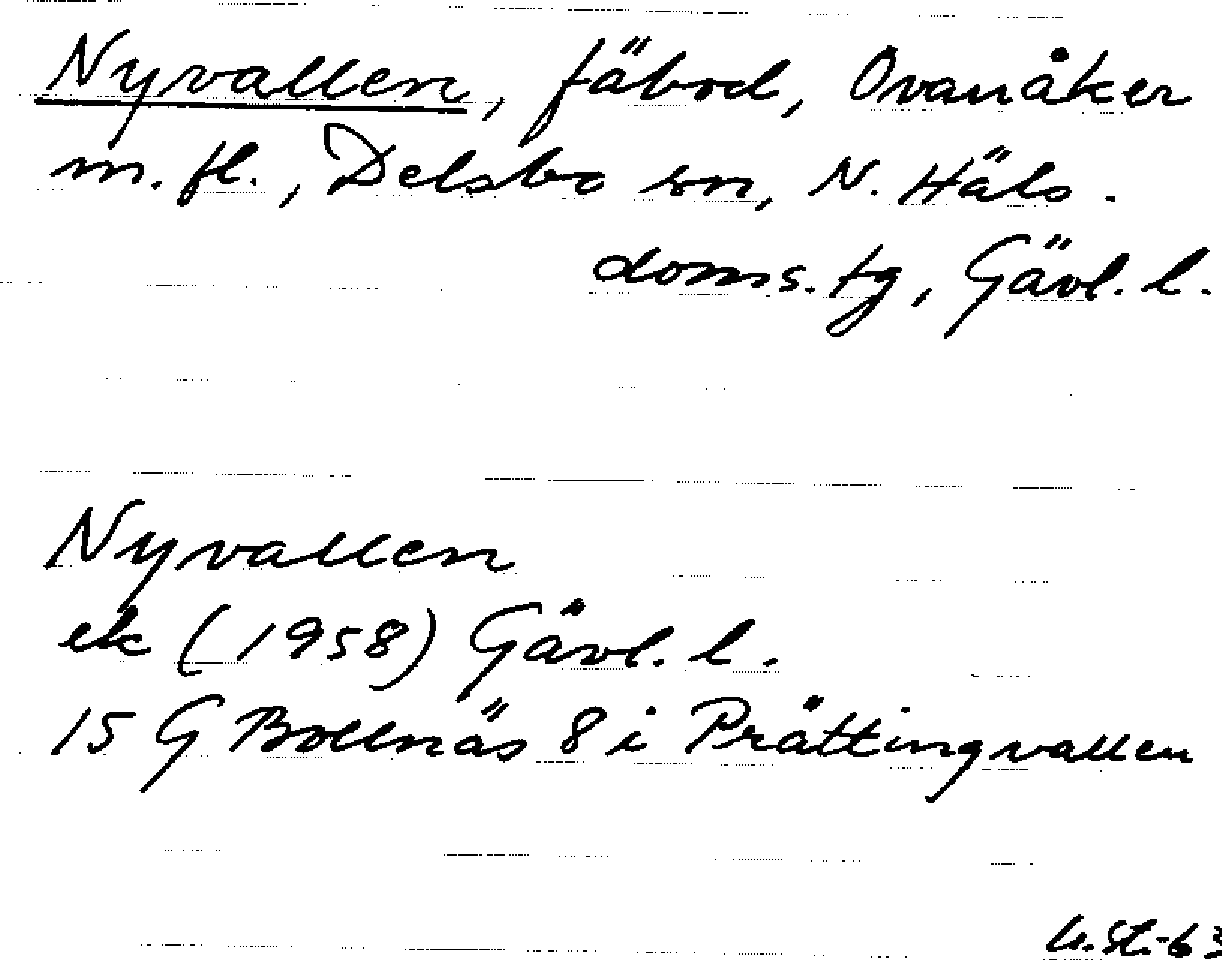 Nyvallen, fäbod, Ovanåker
m. fl., Delsbo sn, N. Häls.
doms. tg, Gävl. l.
Nyvallen
ek (1958) Gävl. l.
15 G Bollnäs 8 i Prättingvallen